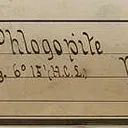 Phlogopite
6° 15' (H.C.L.)